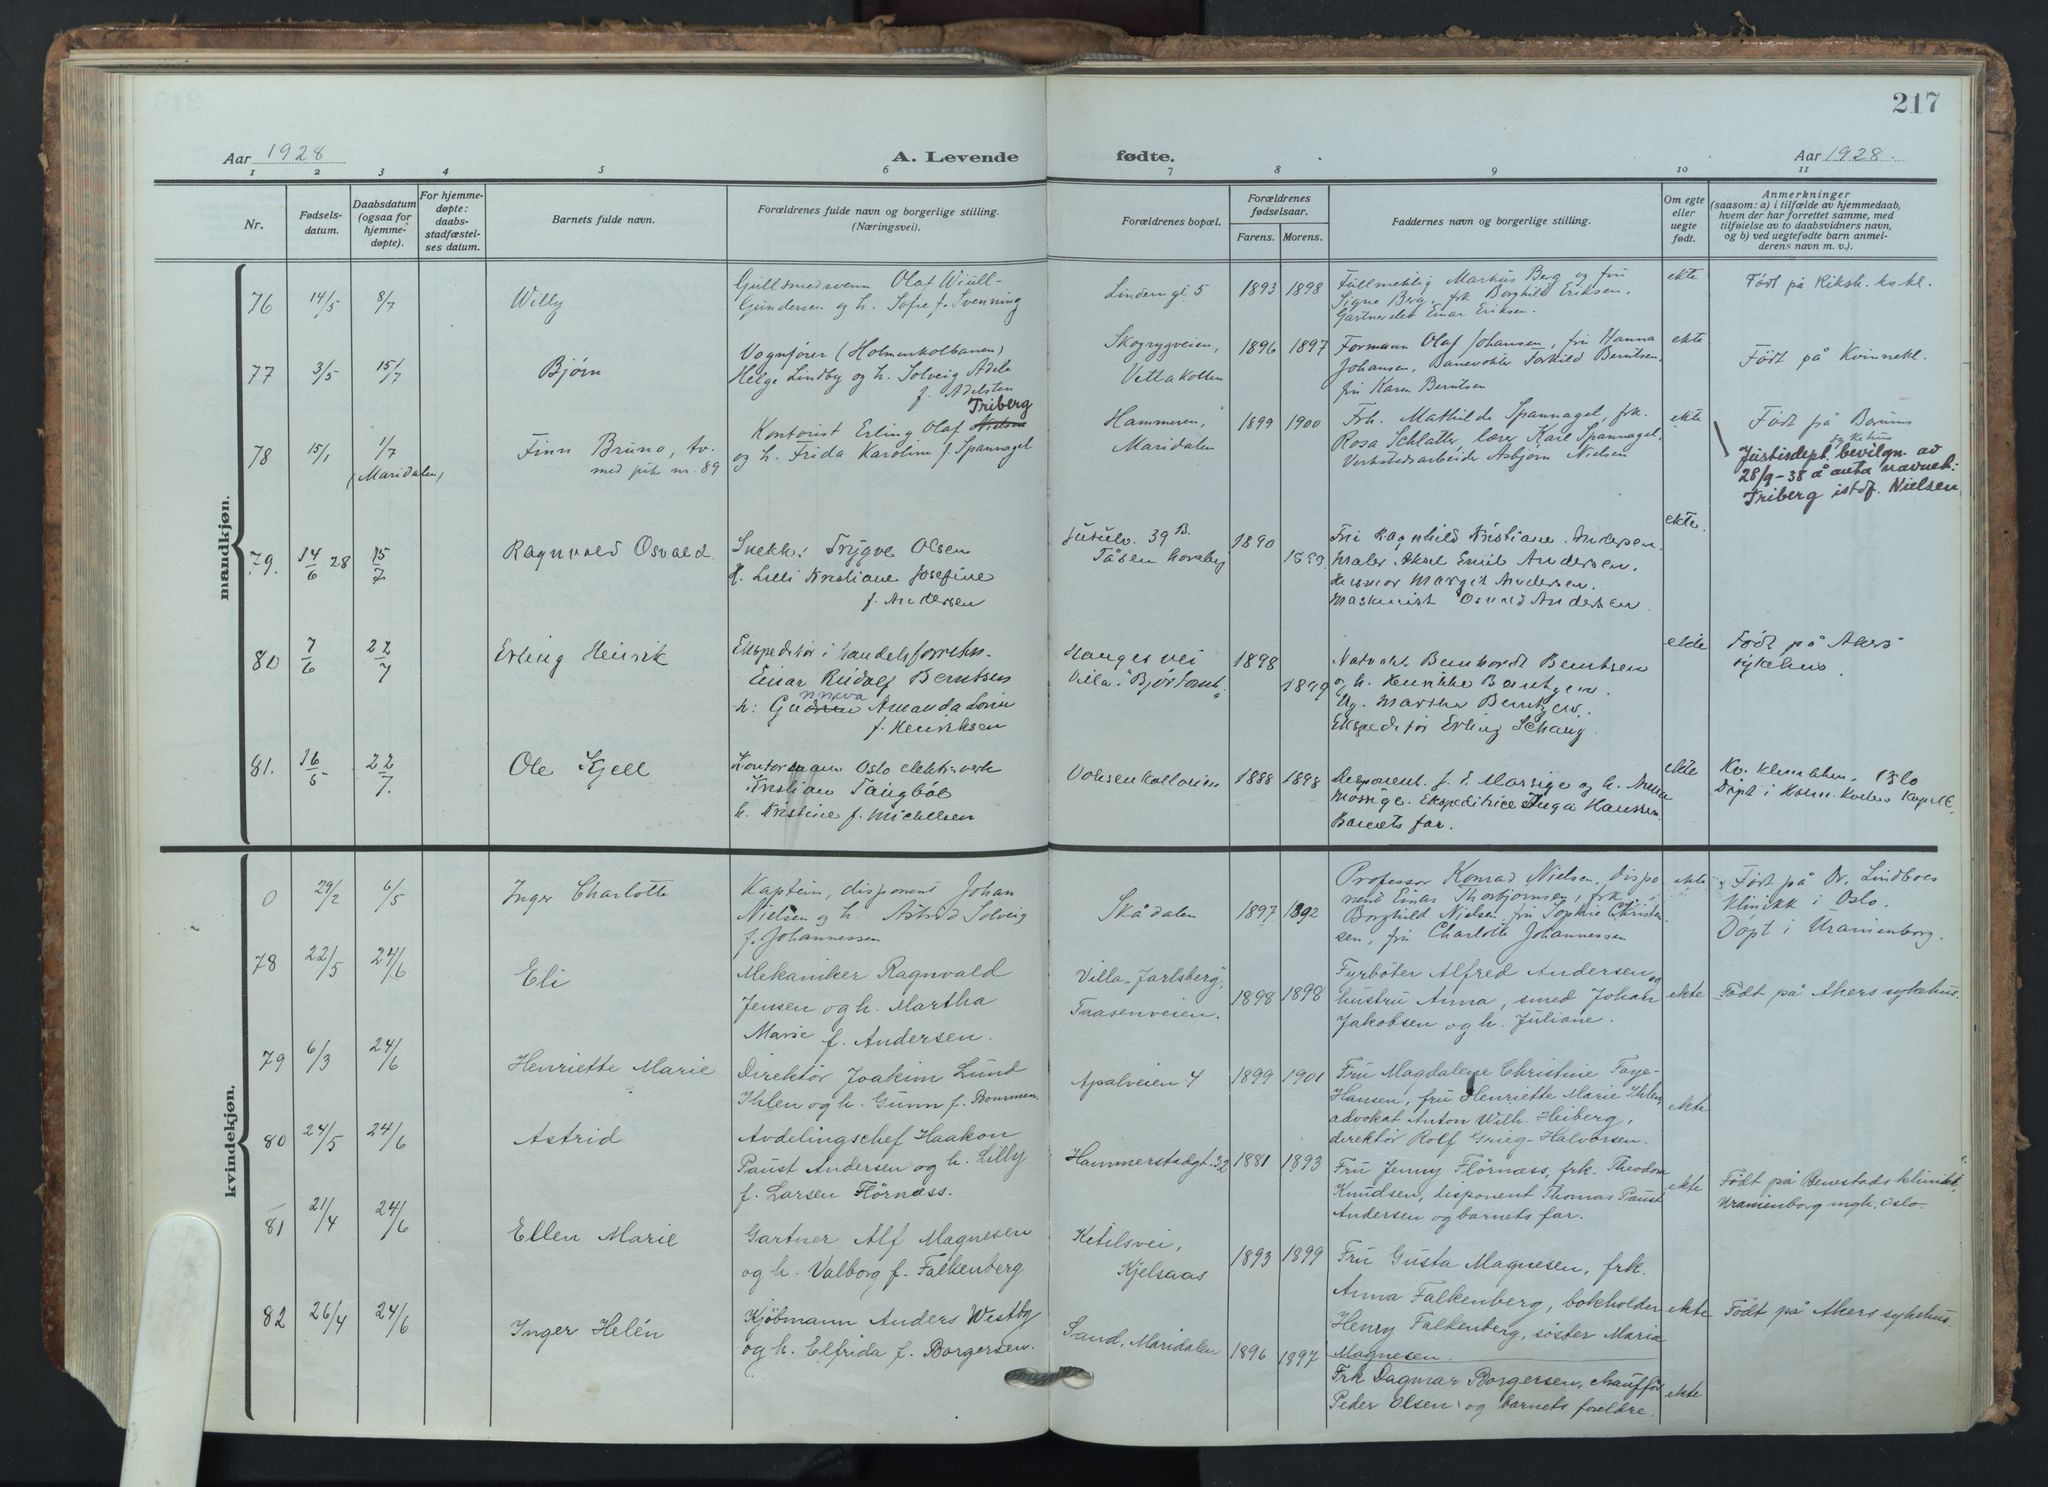 217
Aar 1928
A. Levende
fødte.
Aar 1928.
1 2 3 4 5 6 7 8 9 10 11
Nr.
Fødsels-
datum.
Daabsdatum
(ogsaa for
hjemme-
døpte).
For hjemme-
døpte:
daabs-
stadfæstel-
ses datum.
Barnets fulde navn.
Forældrenes fulde navn og borgerlige stilling.
(Næringsvei).
Forældrenes bopæl.
Forældrenes
fødselsaar.
Farens. Morens.
Faddernes navn og borgerlige stilling.
Om egte
eller
uegte
født.
Anmerkninger
(saasom: a) i tilfælde av hjemmedaab,
hvem der har forrettet samme, med
tilføielse av to daabsvidners navn,
og b) ved uegtefødte barn anmel-
derens navn m. v.).
mandkjøn.
76 14/5 8/7 Willy
Gullsmedsvenn Olaf Wiull-
Gundersen og h. Sofie f. Svenning
Lindemgt 5 1893 1898
Fullmektig Markus Berg og fru
Signe Berg, frk Borghild Eriksen,
Gartnerelev Einar Eriksen.
ekte
Født på Riksh. kv kl.
77 3/5 15/7 Bjørn
Vognfører (Holmenkolbanen)
Helge Lindby og h. Solveig Adele
f. Adelsten
Skogrygveien,
Vettakollen
1896 1897
Formann Olaf Johansen, fru Hanna
Johansen, Banevokter Torkild Berntsen,
fru Karen Berntsen
ekte
Født på Kvinnekl.
78 15/1 1/7
(Maridalen)
Finn Bruno, tv.
med pike nr. 89
Triberg
Kontorist Erling Olaf Nielsen
og h. Frida Karoline f. Spannagel
Hammeren,
Maridalen
1899 1900
Frk. Mathilde Spannagel, frk.
Rosa Schlatter, lærer Karl Spannagel,
Verkstedsarbeider Asbjørn Nielsen
ekte
Født på Bærums
sykehus
Justisdept. bevilgn. av
28/9-38 å anta navnet:
Triberg istdf. Nielsen
79. 14/6 28 15/7 Ragnvald Osvald.
Snekk: Trygve Olsen
H. Lilli Kristiane Josefine
f. Andersen
39 B
Tåsen haveby
1890 1893
Fru Ragnhild Kristiane Andersen.
Maler Aksel Emil Andersen.
Husmor Margit Andersen.
Maskinist Osvald Andersen.
ekte.
80 7/6 22/7 Erling Henrik
Ekspeditør i handelsforretn.
Einar Rudolf Berntsen
nneva
h: Gudrun Amanda Lovise
f. Henriksen
Haugesvei
Villa "Bjørtomt"
1898 1899
Natvakt Bernhardt Berntsen
og h. Henrikke Berntzen.
Ug. Martha Berntzen.
Ekspeditør Erling Schaug.
Født på Akers
sykehus
81. 16/5 22/7. Ole Kjell
Kontormann Oslo elektr.verk
Kristian Tangbøl
h. Kristine f. Michelsen
Voksenkollveien 1888 1898
Disponent. J. E. Mossige og h. Anna
Mossige. Ekspeditrice Inga Hanssen.
Barnets far.
ekte
Kv. klinikken. Oslo
Døpt i Holm. Kollens Kapell.
kvindekjøn.
0 29/2 6/5 Inger Charlotte
Kaptein, disponent Johan
Nielsen og h. Astrid Solveig
f. Johannessen
Skådalen 1897 1892
Professor Konrad Nielsen, dispo
nent Einar Thorbjørnsen, frk.
Borghild Nielsen, fru Sophie Christen
sen, fru Charlotte Johannessen
ekte
Født på Dr. Lindboes
klinikk i Oslo.
Døpt i Uranienborg.
78 22/5 24/6 Eli
Mekaniker Ragnvald
Jensen og h. Martha
Marie f. Andersen.
Villa "Jarlsberg",
Taasenveien.
1898 1898
Fyrbøter Alfred Andersen og
hustru Anna, smed Johan
Jakobsen og h. Juliane.
ekte
Født på Akers sykehus.
79 6/3 24/6 Henriette Marie
Direktør Joakim Lund
Ihlen og h. Gunn f. Bommen.
Apalveien 4 1899 1901
Fru Magdalene Christine Faye-
Hansen, fru Henriette Marie Ihlen,
advokat Anton Wilh. Heiberg,
direktør Rolf Grieg-Halvorsen.
ekte
80 24/5 24/6 Astrid
Avdelingschef Haakon
Paust Andersen og h. Lilly
f. Larsen Flörnæss.
Hammerstadgt. 32 1881 1893
Fru Jenny Flörnæss, frk. Theodora
Knudsen, disponent Thomas Paust
Andersen og barnets far.
ekte
Født på Benestads klinikk,
Uranienborg mgh. Oslo.
81 21/4 24/6 Ellen Marie
Gartner Alf Magnesen
og h. Valborg f. Falkenberg
Ketilsvei,
Kjelsaas
1893 1899
Fru Gusta Magnesen, frk.
Anna Falkenberg, bokholder
Henry Falkenberg, söster Maria
Magnesen.
ekte
Født på Akers sykehus
82 26/4 24/6 Inger Helén
Kjøbmann Anders Westby
og h. Elfrida f. Borgersen.
Sand, Maridalen 1896 1897
Frk Dagmar Borgersen, chauffør
Peder Olsen og barnets foreldre.
ekte